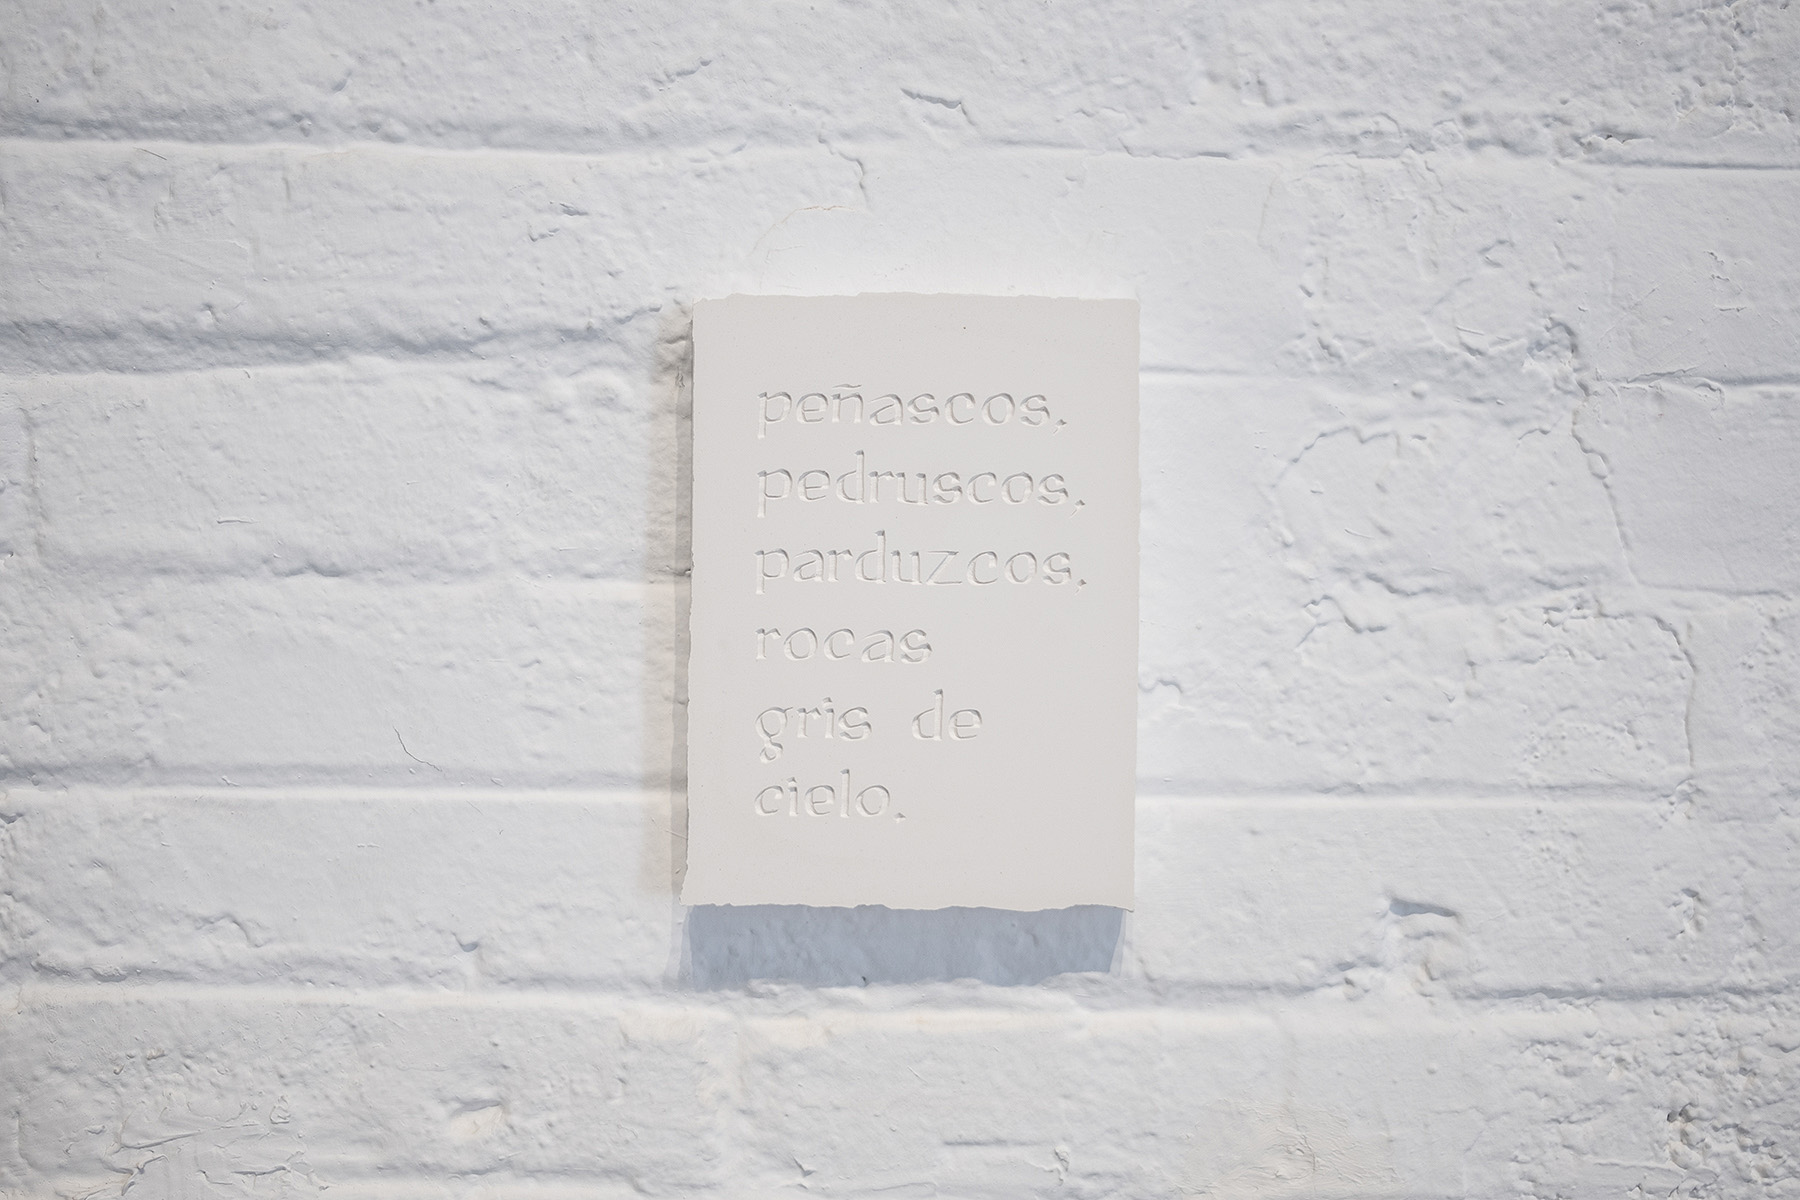 peñascos,
pedruscos,
parduzcos,
rocas
gris de
cielo.